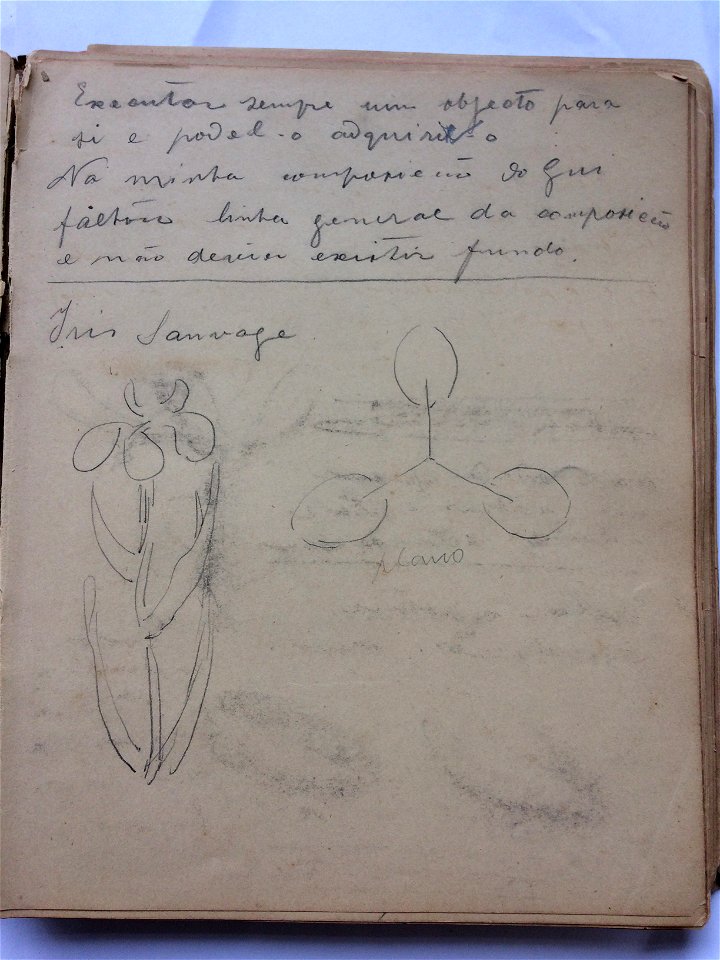 Executar sempre um objecto para
si e podel-o adquiril-o
Na minha composição do Gui
faltou linha general da composição
e não deviar existir fundo.
Iris Sauvage
plano